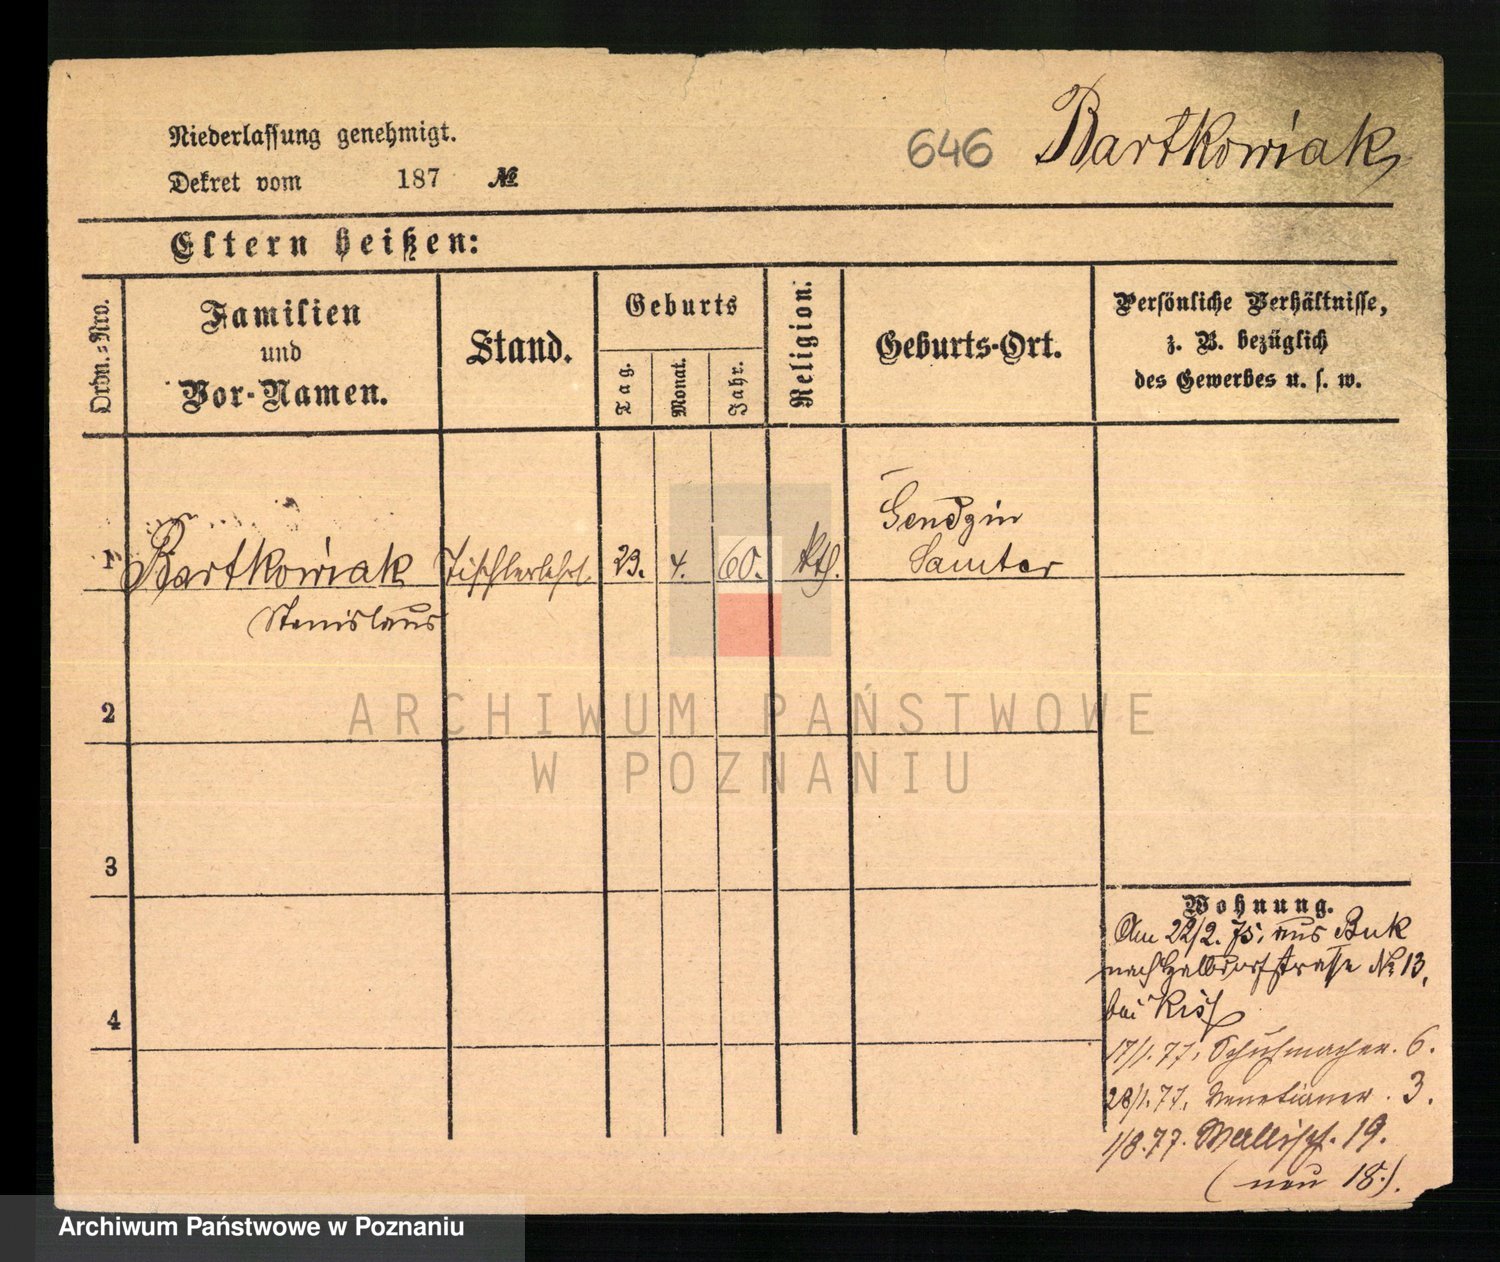 Niederlassung genehmigt.
Dekret vom 187 №
646 Bartkowiak
Eltern heißen:
Ordn.-Nro.
Familien
und
Vor-Namen.
Stand.
Geburts
Tag.
Monat.
Jahr.
Religion.
Geburts-Ort.
Persönliche Verhältnisse,
z. B. bezüglich
des Gewerbes u. s. w.
1 Bartkowiak Tischlerlehrl. 23. 4. 60. kth.
Stanislaus
Sendzin
Samter
2
3
4
Wohnung.
Am 22/2. 75. aus Buk
nach Halbdorfstrasse № 13,
bei
17/1. 77. Schuhmacher. 6.
28/1. 77. Venetianer. 3.
1/8. 77. Wallisch. 19.
(neu 18.).
ARCHIWUM PAŃSTWOWE
W POZNANIU
Archiwum Państwowe w Poznaniu